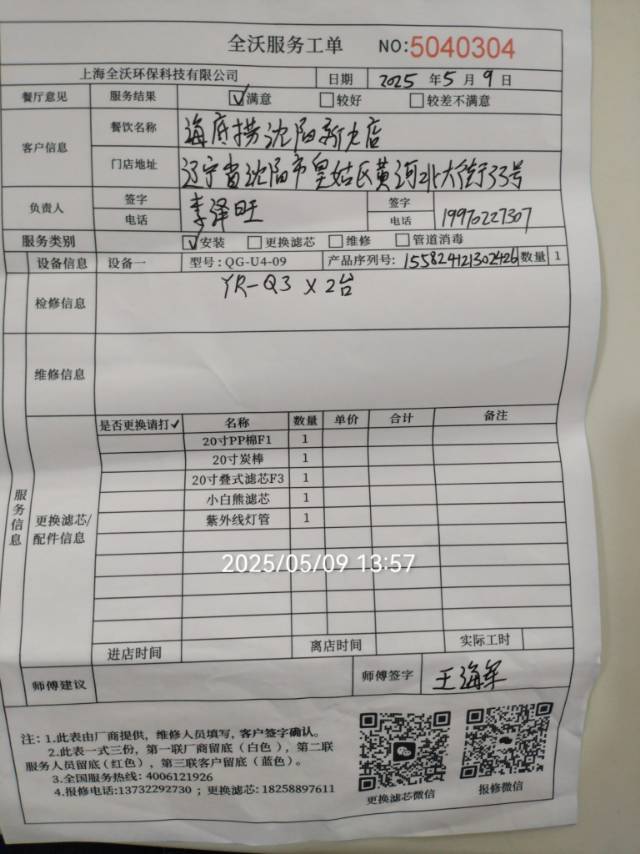 全沃服务工单 NO:5040304
上海全沃环保科技有限公司 日期 2025年5月9日
餐厅意见 服务结果 ☑满意 ☐较好 ☐较差不满意
客户信息 餐饮名称 海底捞沈阳新大店
门店地址 辽宁省沈阳市皇姑区黄河北大街33号
负责人 签字 李泽旺 签字
电话 电话 19970227307
服务类别 ☑安装 ☐更换滤芯 ☐维修 ☐管道消毒
服务信息
设备信息 设备一 型号:QG-U4-09 产品序列号:155824121302426 数量 1
检修信息 YR-Q3 X2台
维修信息
更换滤芯/配件信息
是否更换请打✓ 名称 数量 单价 合计 备注
20寸PP棉F1 1
20寸炭棒 1
20寸叠式滤芯F3 1
小白熊滤芯 1
紫外线灯管 1
2025/05/09 13:57
进店时间 离店时间 实际工时
师傅建议 师傅签字 王海军
注:1.此表由厂商提供，维修人员填写，客户签字确认。
2.此表一式三份，第一联厂商留底(白色)，第二联
服务人员留底(红色)，第三联客户留底(蓝色)。
3.全国服务热线: 4006121926
4.报修电话:13732292730；更换滤芯: 18258897611
更换滤芯微信 报修微信